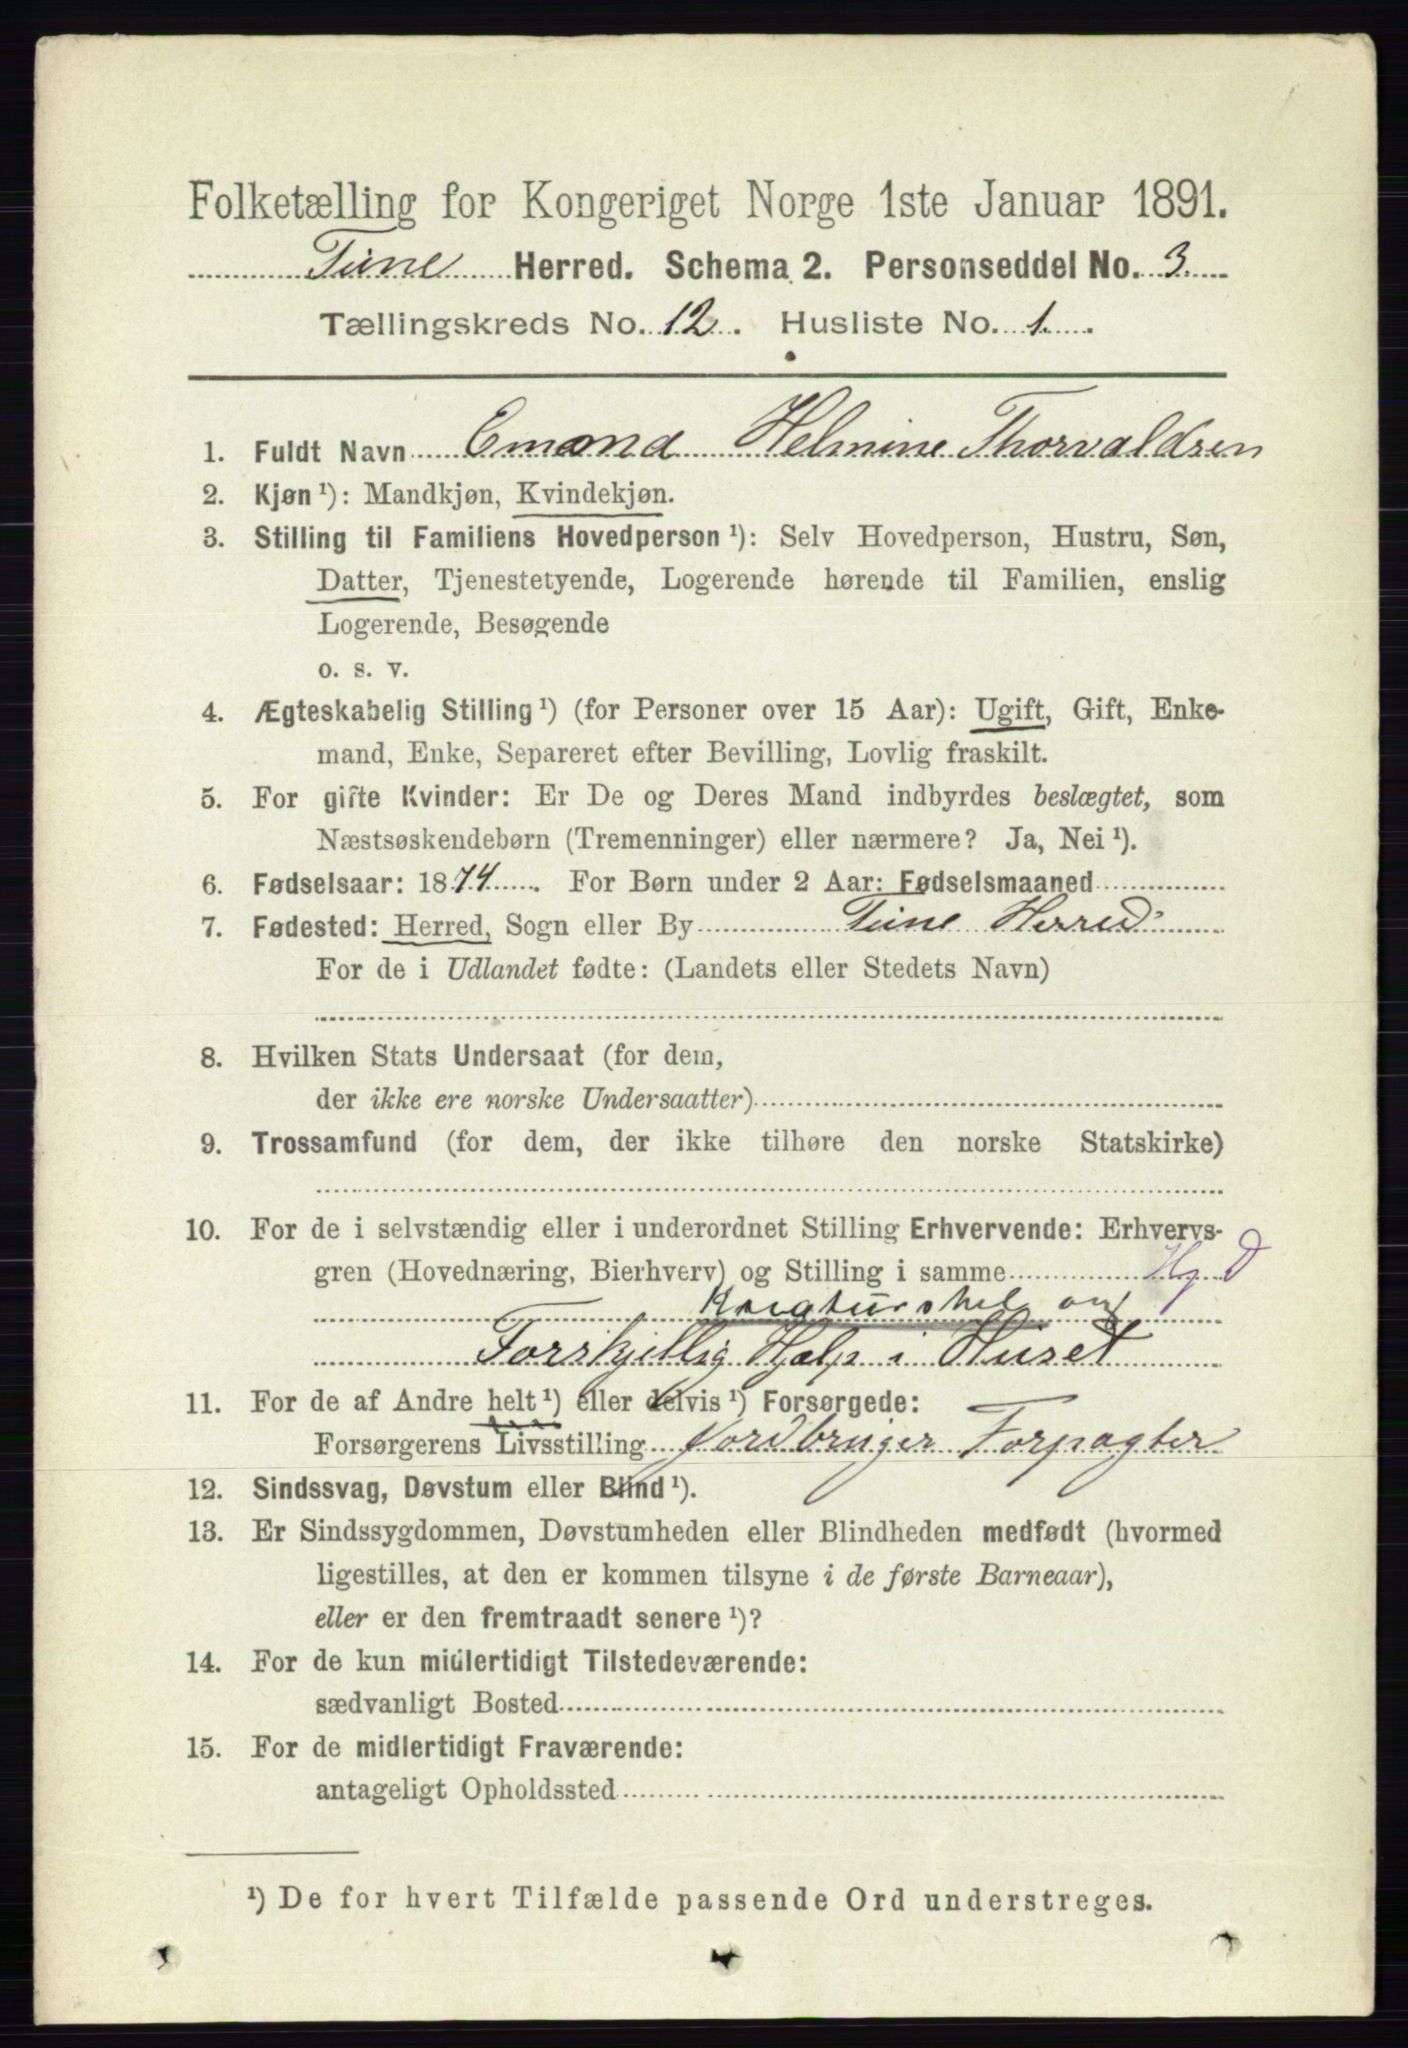 Folketælling for Kongeriget Norge 1ste Januar 1891.
Tune Herred. Schema 2. Personseddel No. 3
Tællingskreds No. 12. Husliste No. 1.
1. Fuldt Navn Emond Helmine Thorvaldsen
2. Kjøn ¹): Mandkjøn, Kvindekjøn.
3. Stilling til Familiens Hovedperson ¹): Selv Hovedperson, Hustru, Søn,
Datter, Tjenestetyende, Logerende hørende til Familien, enslig
Logerende, Besøgende
o. s. v.
4. Ægteskabelig Stilling ¹) (for Personer over 15 Aar): Ugift, Gift, Enke-
mand, Enke, Separeret efter Bevilling, Lovlig fraskilt.
5. For gifte Kvinder: Er De og Deres Mand indbyrdes beslægtet, som
Næstsøskendebørn (Tremenninger) eller nærmere? Ja, Nei ¹).
6. Fødselsaar: 1874. For Børn under 2 Aar: Fødselsmaaned
7. Fødested: Herred, Sogn eller By Tune Herred
For de i Udlandet fødte: (Landets eller Stedets Navn)
8. Hvilken Stats Undersaat (for dem,
der ikke ere norske Undersaatter)
9. Trossamfund (for dem, der ikke tilhøre den norske Statskirke)
10. For de i selvstændig eller i underordnet Stilling Erhvervende: Erhvervs-
gren (Hovednæring, Bierhverv) og Stilling i samme Hg D
Kreaturstel og
Forskjellig Hjælp i Huset
11. For de af Andre helt ¹) eller delvis ¹) Forsørgede:
Forsørgerens Livsstilling Jordbruger Forpagter
12. Sindssvag, Døvstum eller Blind ¹).
13. Er Sindssygdommen, Døvstumheden eller Blindheden medfødt (hvormed
ligestilles, at den er kommen tilsyne i de første Barneaar),
eller er den fremtraadt senere ¹)?
14. For de kun midlertidigt Tilstedeværende:
sædvanligt Bosted
15. For de midlertidigt Fraværende:
antageligt Opholdssted
¹) De for hvert Tilfælde passende Ord understreges.